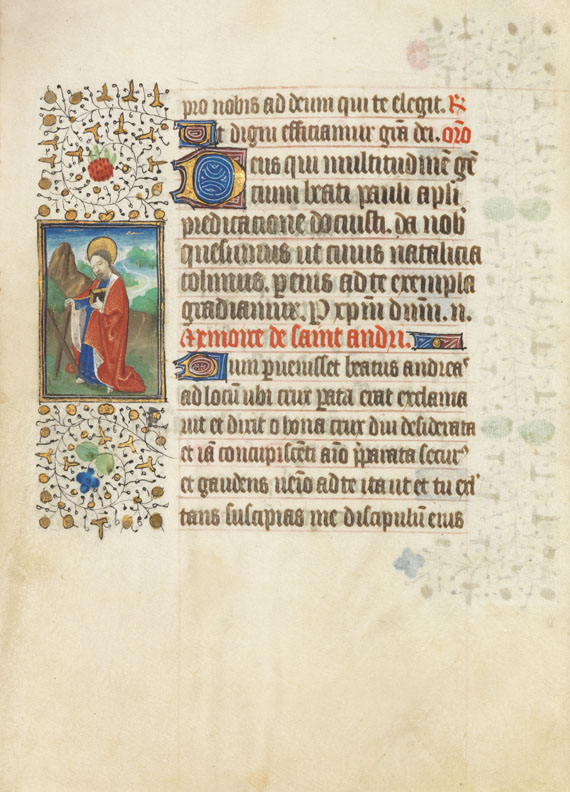 pro nobis ad deum qui te elegit. R
Ut digni efficiamur grā dei. orō
Deus qui multitudinē gē
tium beati pauli apli
predicatione docuisti. da nob
quesumus ut cuius natalicia
colimus. petius ad te exempla
gradiamur. P xpm dnm. n.
Memoire de saint andri.
Cum puenisset beatus andreas
ad locū ubi crux pata erat exclama
uit et dixit o bona crux diu desiderata
et iā concupiscēti aīo pparata secur'
et gaudens uēio ad te ita ut et tu exl
tans suscipias me discipulū eius